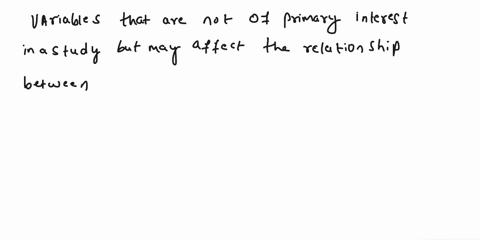 Variables that are not of primary interest
in a study but may affect the relationship
between